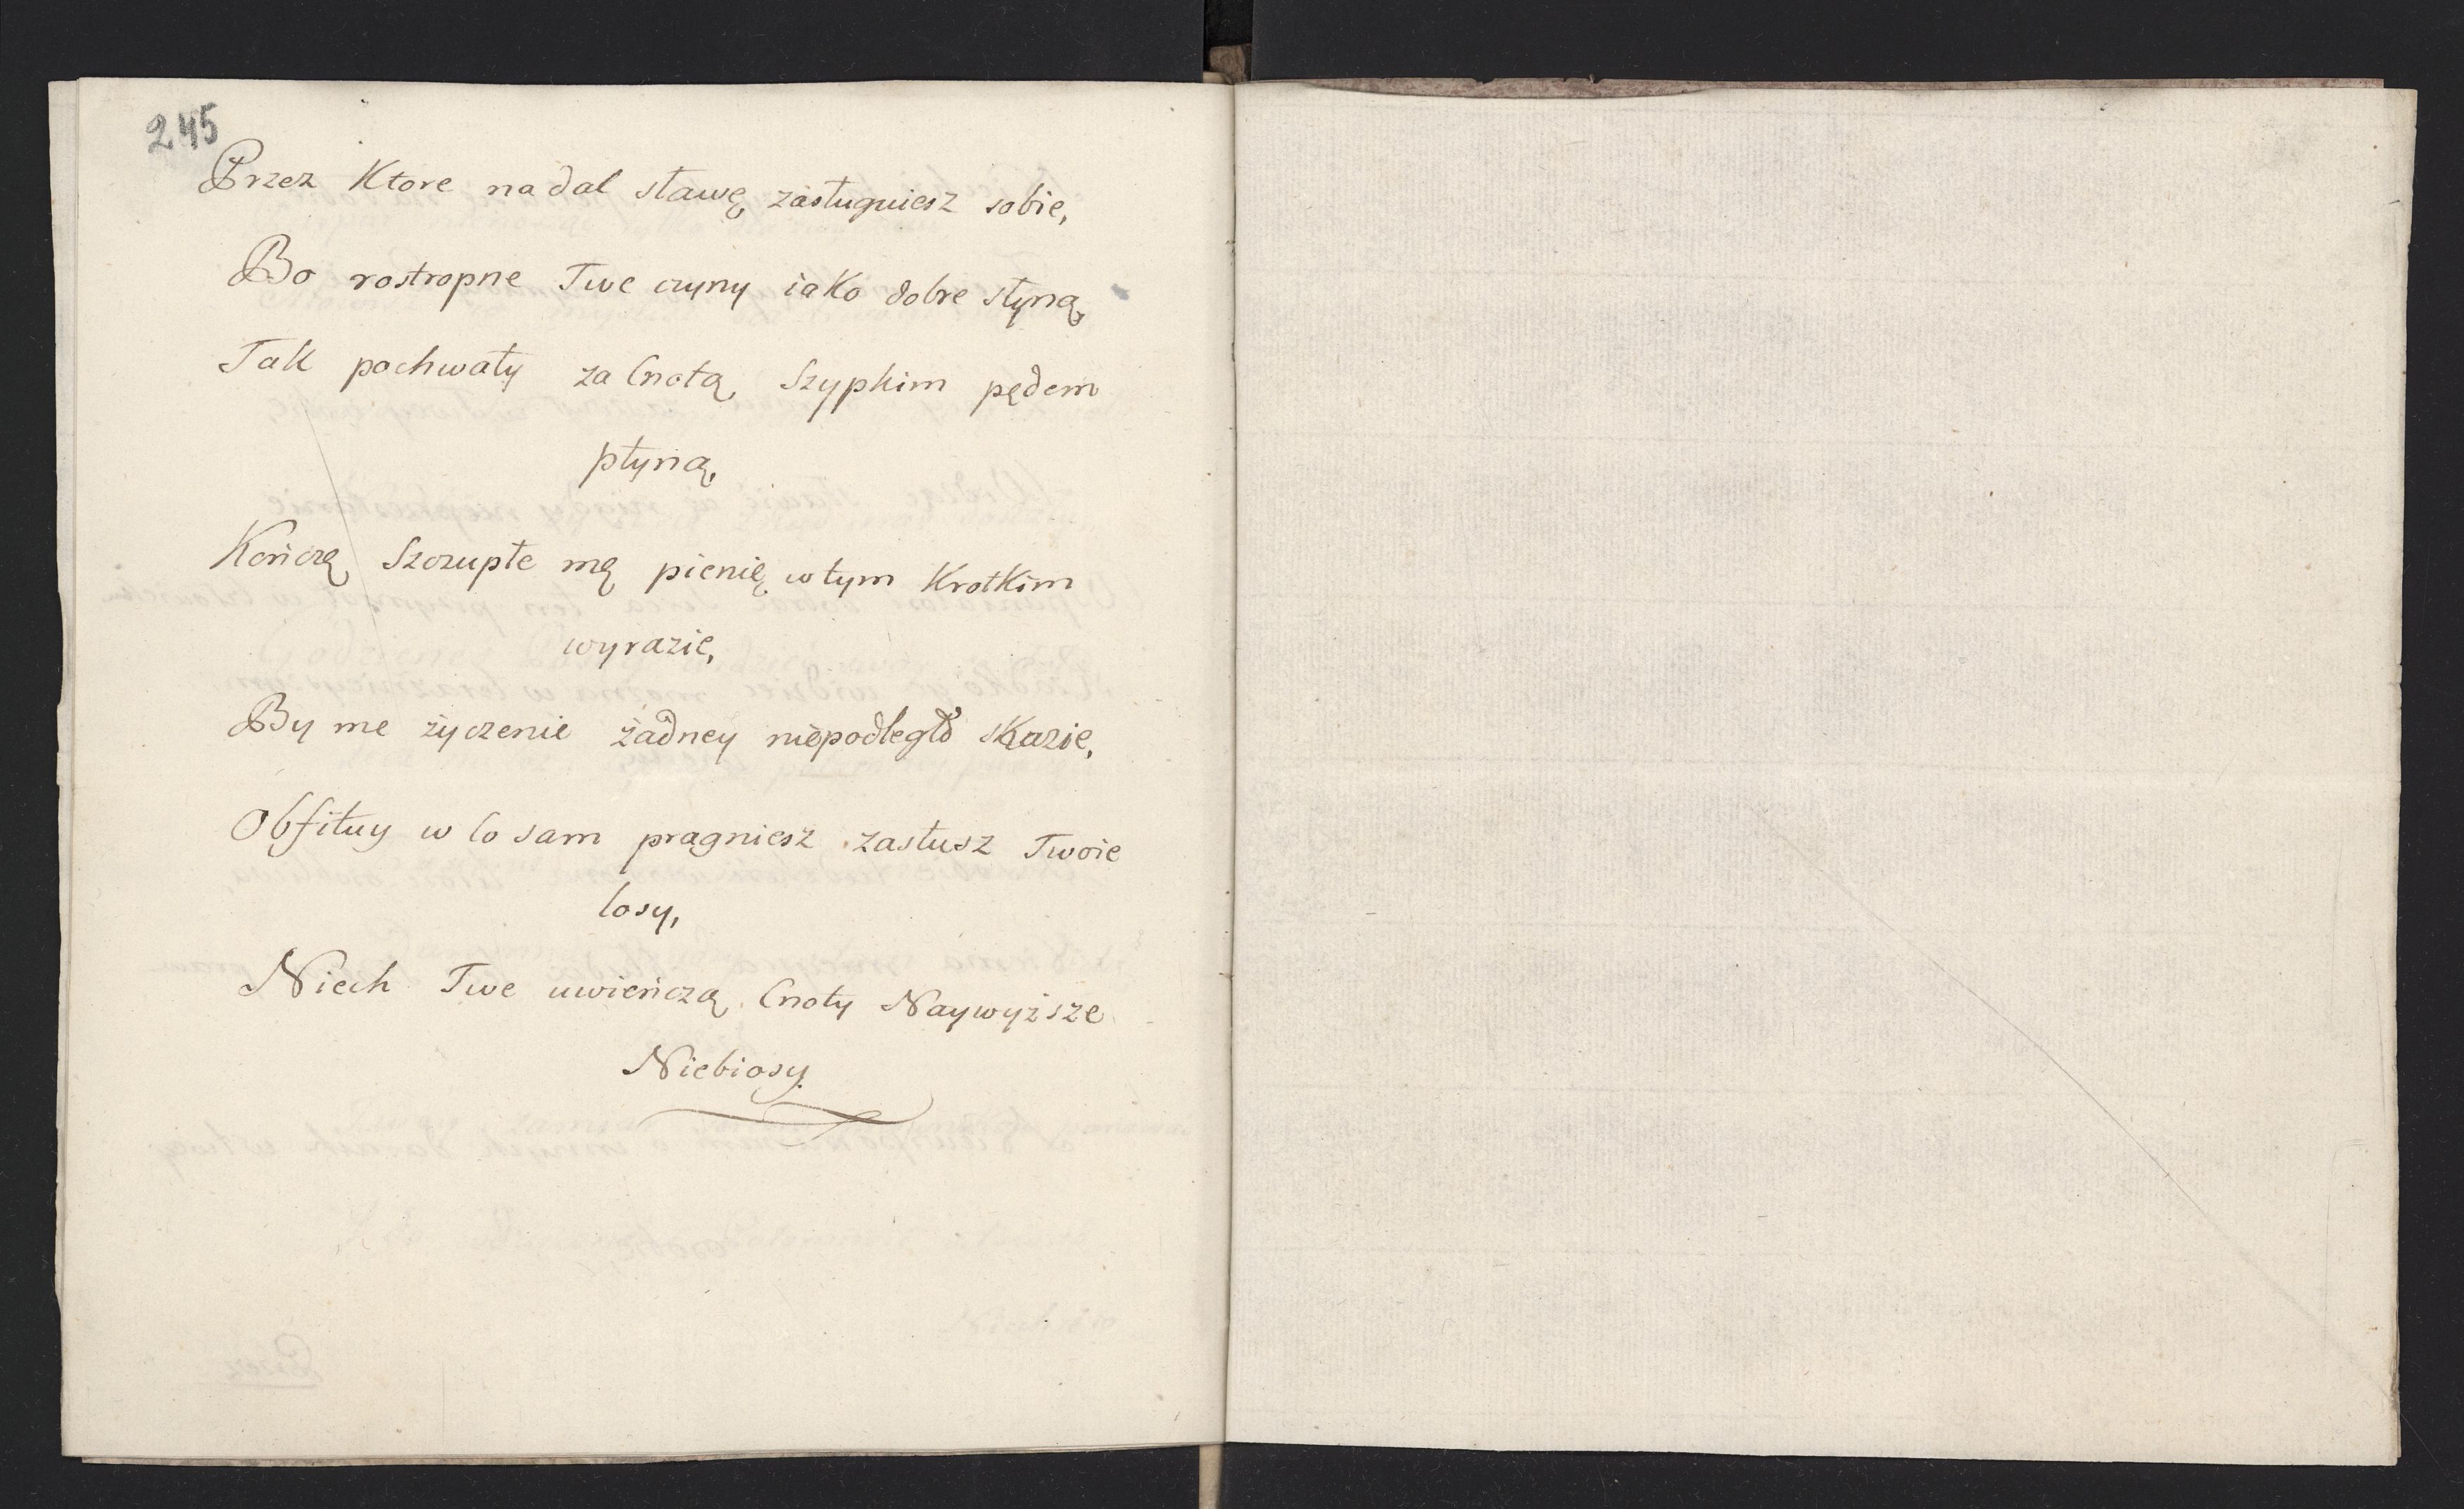 245
Przez Ktore nadal sławę zasługuiesz sobie,
Bo rostropne Twe czyny iako dobre słyną,
Tak pochwały za Cnotą Szypkim pędem
płyną,
Kończę Szczupłe mę pienię w tym Krotkim
wyrazie,
By me życzenie żadney niepodległo skazie,
Obfituy w Co sam pragniesz zasłusz Twoie
losy,
Niech Twe uwieńczą Cnoty Naywyższe
Niebiosy.